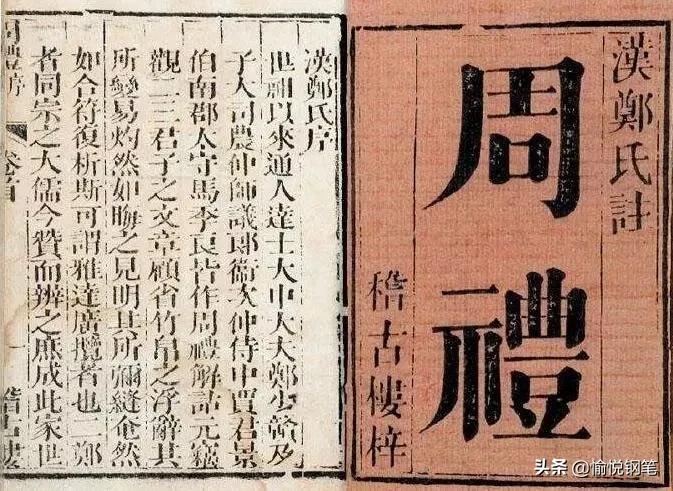 漢鄭氏註
周禮
稽古樓梓
漢鄭氏序
世祖以來通人達士大中大夫鄭少贛及
子大司農仲師議郎衛次仲侍中賈君景
伯南郡太守馬季良皆作周禮解詁元竊
觀二三君子之文章顧省竹帛之浮辭其
所變易灼然如晦之見明其所彌縫奄然
如合符復析斯可謂雅達廣攬者也二鄭
者同宗之大儒今贊而辨之庶成此家世
周禮序 卷首 一 稽古樓
头条 @愉悦钢笔